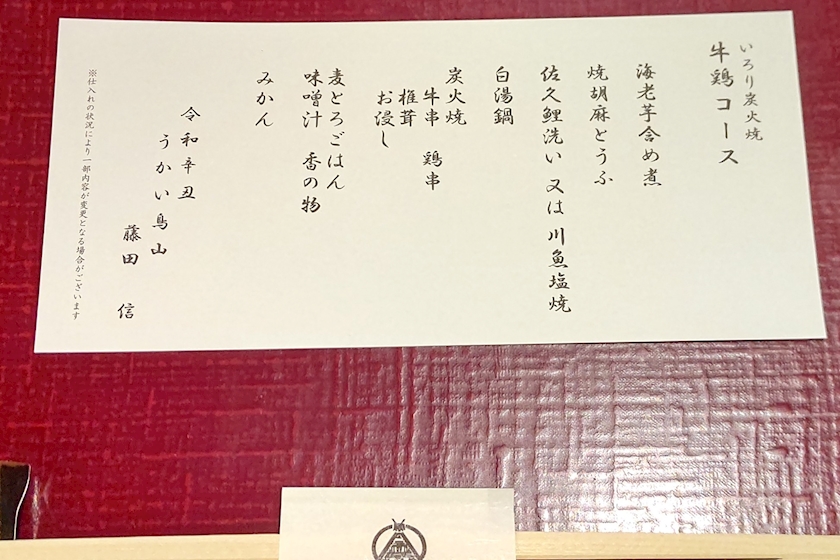 いろり炭火焼
牛鶏コース
海老芋含め煮
焼胡麻とうふ
佐久鯉洗い 又は 川魚塩焼
白湯鍋
炭火焼
牛串 鶏串
椎茸
お浸し
麦とろごはん
味噌汁 香の物
みかん
令和辛丑
うかい鳥山
藤田 信
※仕入れの状況により一部内容が変更となる場合がございます